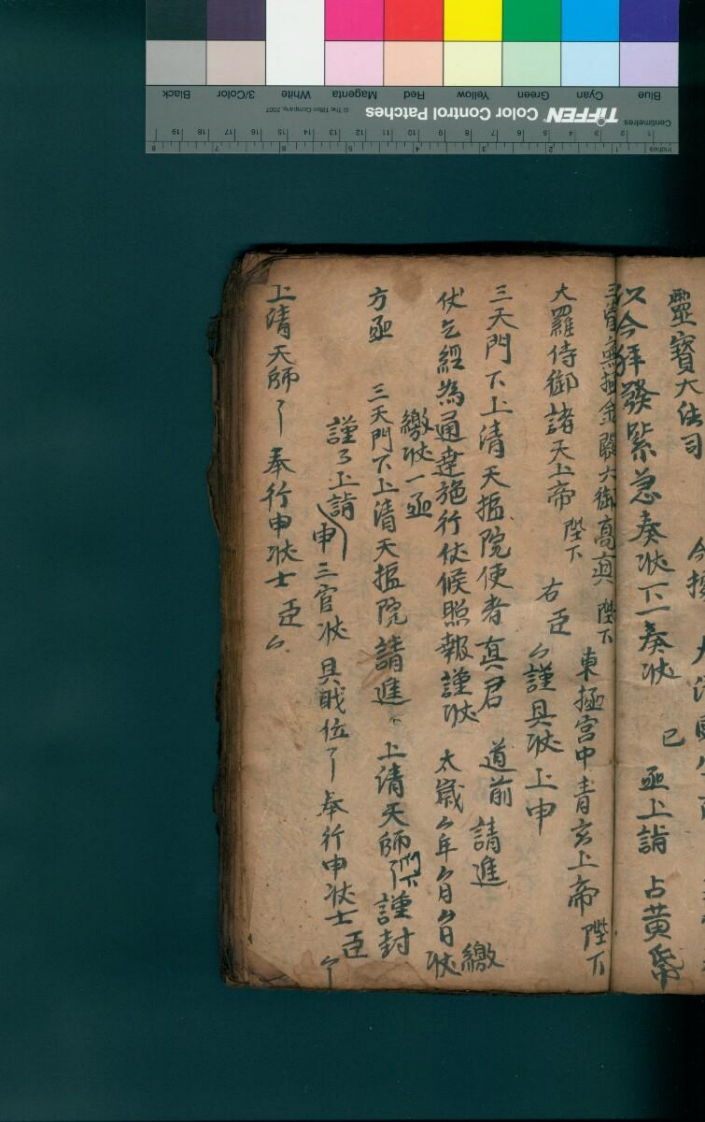 靈寳大法司
今按
以今拜發緊急奏狀下一奏狀 已 亟上請 占黄
三
六御高真 陛下
東極宮中青玄上帝 陛下
大羅侍御諸天上帝 陛下 右臣厶謹具狀上申
三天門下上清天樞院使者真君 道前 請進 繳
伏乞經為通達施行伏候照報謹狀 太歲厶年厶月厶日 狀
繳狀一亟
方亟 三天門下上清天樞院 請進 上清天師門下 謹封
謹上請 申三官狀 具戝位 奉行申狀士臣
上清天師 奉行申狀士臣厶
TIFFEN Color Control Patches
© The Tiffen Company, 2007
Centimetres
Inches
Blue Cyan Green Yellow Red Magenta White 3/Color Black